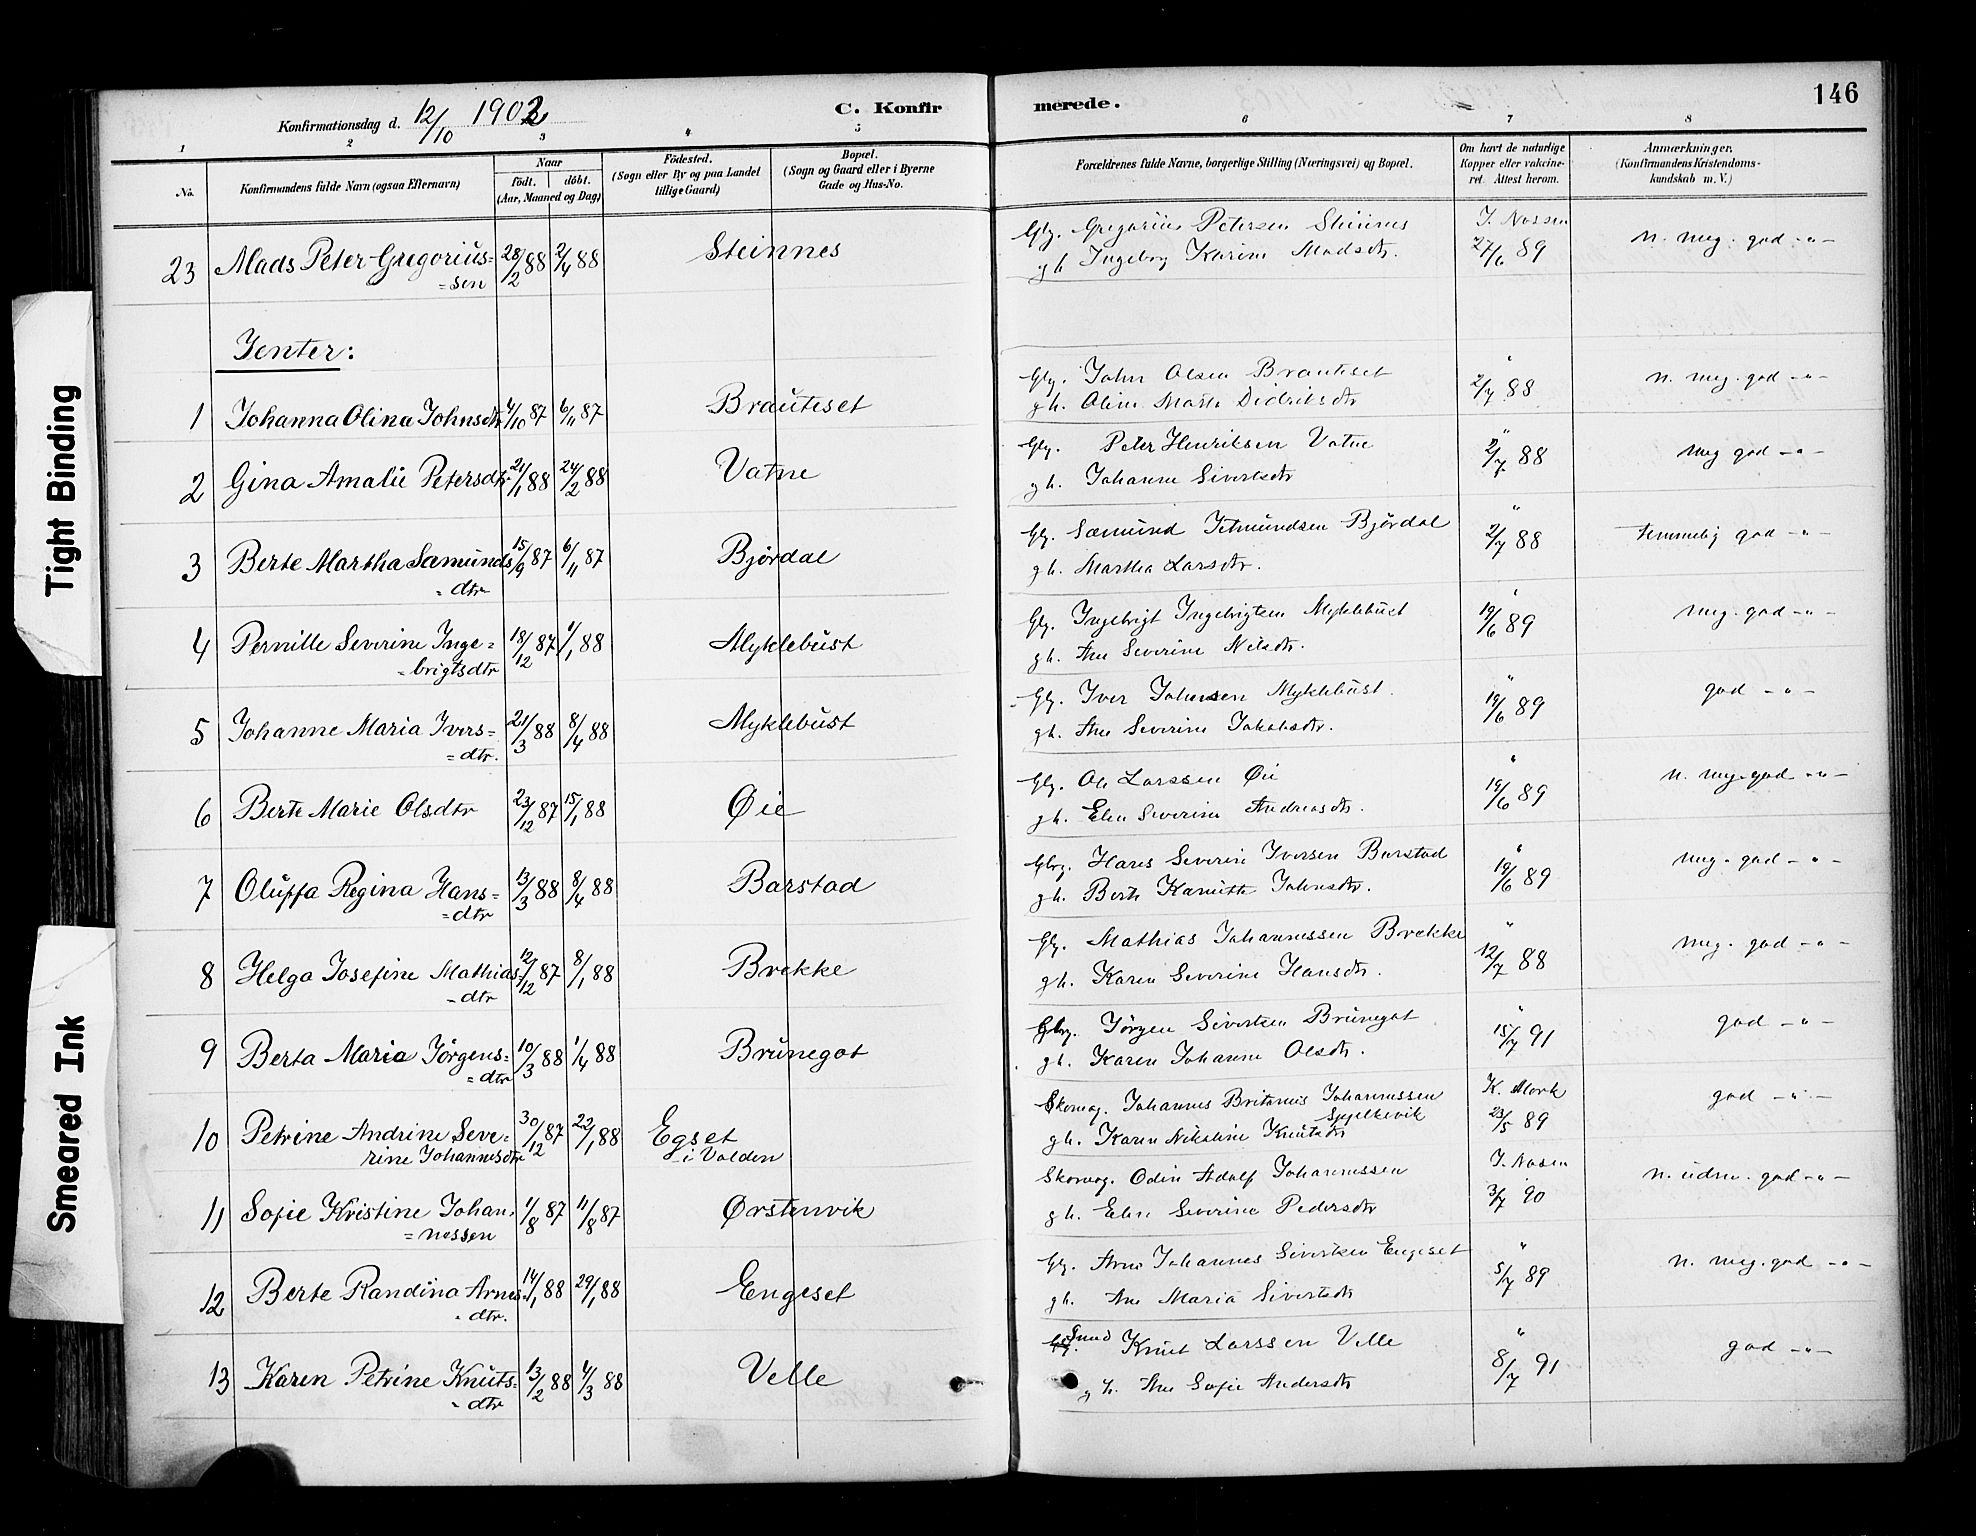 146
C. Konfirmerede.
Konfirmationsdag d. 12/10 1902
1 2 3 4 5 6 7 8
No.
Konfirmandens fulde Navn (ogsaa Efternavn)
Naar
födt. döbt.
(Aar, Maaned og Dag)
Födested.
(Sogn eller By og paa Landet
tillige Gaard)
Bopæl.
(Sogn og Gaard eller i Byerne
Gade og Hus-No.
Forældrenes fulde Navne, borgerlige Stilling (Næringsvei) og Bopæl.
Om havt de naturlige
Kopper eller vakcine-
ret. Attest herom.
Anmærkninger.
(Konfirmandens Kristendoms-
kundskab m. V.)
23 Mads Peter Gregorius= 28/2 88 2/4 88 Steinnes Gbr. Gregorius Petersen Steinnes J. Nossen n. meg. god -"-
=sen gh Ingeborg Karine Madsdtr. 27/6 89
Jenter:
1 Johanna Olina Johnsdtr 4/10 87 6/11 87 Brauteset Gbr. John Olsen Brauteset " n. meg. god -"-
gh. Oline Marte Didriksdtr 2/7 88
2 Gina Amalie Petersdtr 21/1 88 24/2 88 Vatne Gbr. Peter Henriksen Vatne " meg god -"-
gh. Johanne Sivertsdtr 2/7 88
3 Berte Martha Sæmunds 15/9 87 6/11 87 Bjørdal Gbr. Sæmund Jetmundsen Bjørdal " temmelig god -"-
=dtr gh. Martha Larsdtr. 2/7 88
4 Pernille Severine Inge= 18/12 87 1/1 88 Myklebust Gbr. Ingebrigt Ingebrigtsen Myklebust " meg. god -"-
=brigtsdtr gh. Ane Severine Nilsdtr. 19/6 89
5 Johanne Maria Ivers= 21/3 88 8/4 88 Myklebust Gbr. Iver Johnsen Myklebust. " god -"-
=dtr. gh. Ane Severine Jakobsdtr. 19/6 89
6 Berte Marie Olsdtr 23/12 87 15/1 88 Øie Gbr. Ole Larssen Øie " n. meg. god -"-
gh. Elen Severine Andreasdtr. 19/6 89
7 Oluffa Regina Hans= 13/3 88 8/4 88 Barstad Gbr. Hans Severin Iversen Barstad " meg. god -"-
=dtr gh. Berte Kanutte Johnsdtr. 19/6 89
8 Helga Josefine Mathias= 12/12 87 8/1 88 Brekke Gbr. Mathias Johannessen Brekke " meg. god -"-
=dtr gh. Karen Severine Hansdtr. 12/7 88
9 Berta Maria Jörgens= 10/3 88 1/4 88 Brunegot Gbr. Jörgen Sivertsen Brunegot " god -"-
=dtr gh. Karen Johanne Olsdtr. 15/7 91
10 Petrine Andrine Seve= 30/12 87 22/1 88 Egset Skomag. Johannes Britanus Johannessen K. Mork god -"-
rine Johannesdtr i Volden Spjelkevik
gh. Karen Nikoline Knutsdtr 23/5 89
11 Sofie Kristine Johan= 1/8 87 11/8 87 Ørstenvik Skomag. Odin Adolf Johannessen J. Nosen n. udm. god -"-
=nessen gh. Elen Severine Pedersdtr 3/7 90
12 Berte Randina Arnes= 14/1 88 29/1 88 Engeset Gbr. Arne Johannes Sivertsen Engeset " n. meg. god -"-
=dtr. gh. Ane Maria Sivertsdtr 5/7 89
13 Karen Petrine Knuts= 13/2 88 4/3 88 Velle Knut Larssen Velle " god -"-
=dtr gh. Ane Sofie Andersdtr 8/7 91
Tight Binding
Smeared Ink